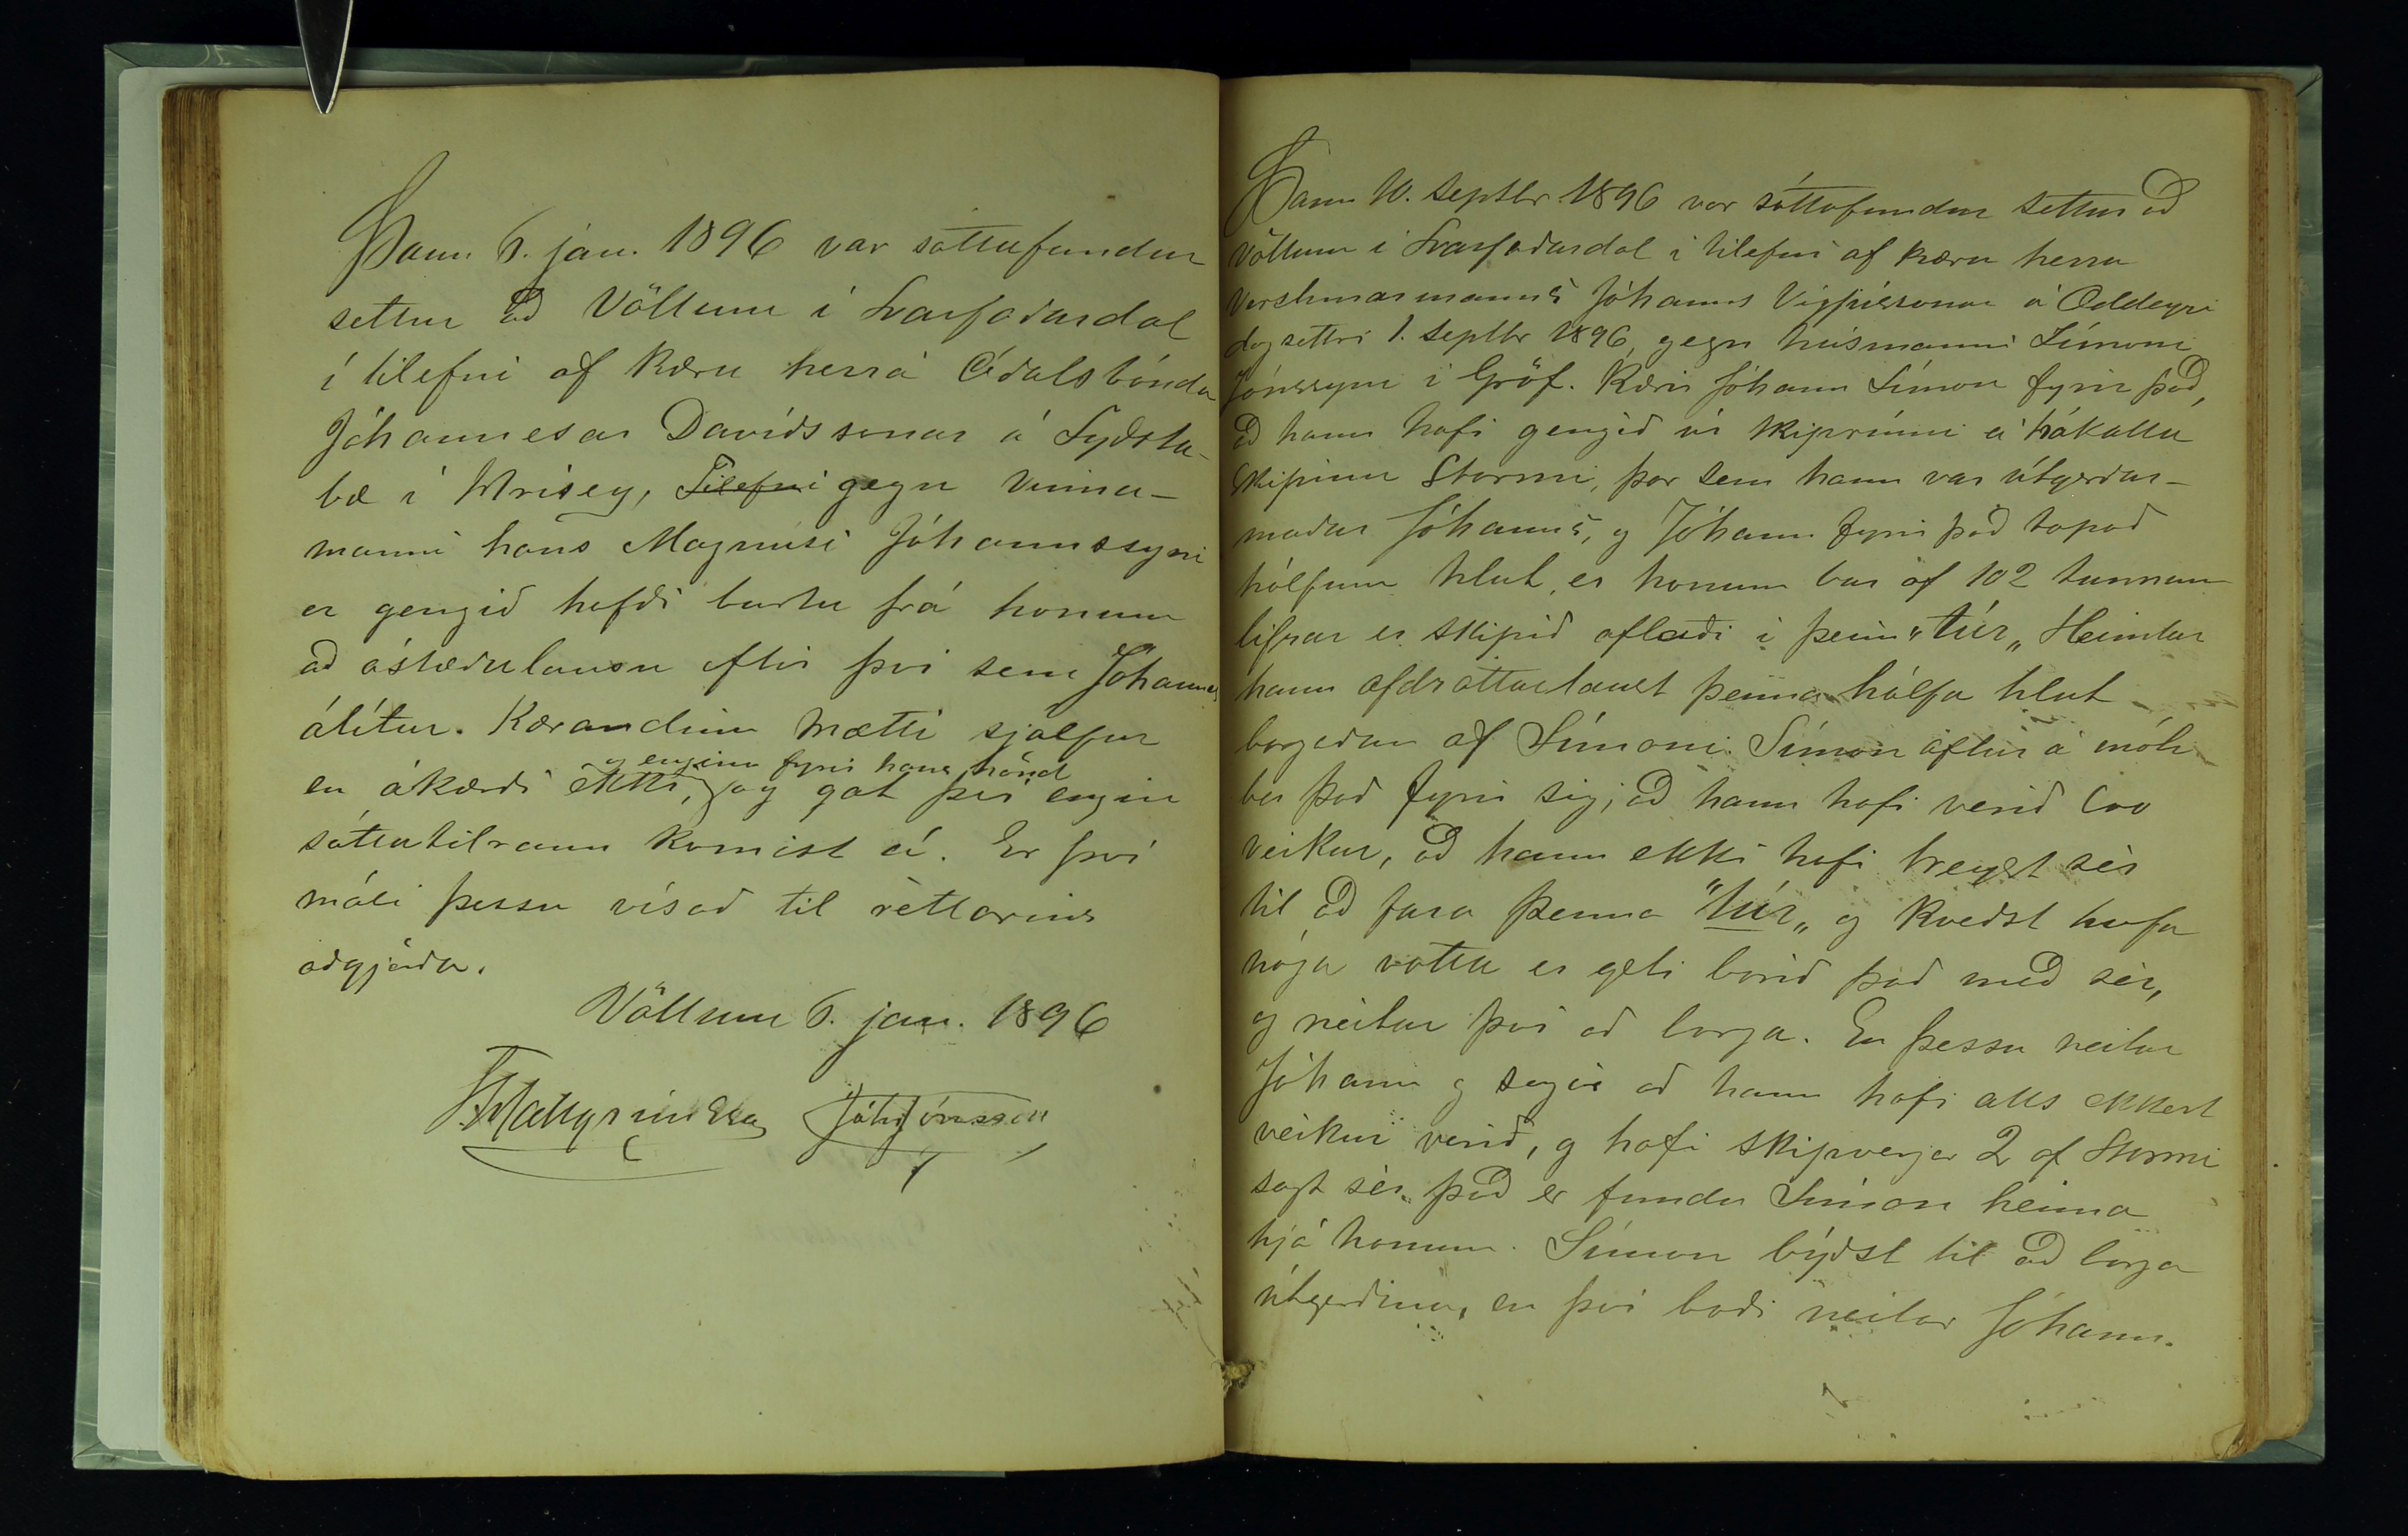 Þann 6. jan. 1896 var sáttafundur
settur að Völlum í Svarfaðardal
í tilefni af kæru herra Óðalsbónda
Jóhannesar Davíðssonar á Syðsta-
bæ í Hrísey, Tilefni gegn vinnu-
manni hans Magnúsi Jóhannssyni
er gengið hefði burtu frá honum
að ástæðulausu eftir því sem Jóhannes
álítur. Kærandinn mætti sjálfur
og enginn fyrir hans hönd
en ákærði ekki, og gat því engin
sáttatilraun komist á. Er því
máli þessu vísað til réttarins
aðgjörða.
Völlum 6. jan. 1896
T. Hallgrímsson Jóh Jónsson
Þann 10. septbr. 1896 var sáttafundur settur að
Völlum í Svarfaðardal í tilefni af kæru herra
Verslunarmanns Jóhanns Vigfússonar á Oddeyri
dagsettri 1. septbr 1896, gegn húsmanni Símoni
Jónssyni í Gröf. Kærir Jóhann Símon fyrir það,
að hann hafi gengið úr skiprúmi á hákalla
skipinu Stormi, þar sem hann var útgerðar-
maður Jóhanns, og Jóhann fyrir það tapað
hálfum hlut, er honum bar af 102 tunnum
lifrar er skipið aflaði í þeim "túr„ Heimtar
hann afdráttarlaust þenna hálfa hlut
borgaðan af Símoni. Símon aftur á móti
ber það fyrir sig, að hann hafi verið svo
veikur, að hann ekki hafi treyst sér
til að fara þenna "túr„ og kveðst hafa
nóga votta er geti borið það með sér,
og neitar því að borga. En þessu neitar
Jóhann og segir að hann hafi alls ekkert
veikur verið, og hafi skipverjar 2 af Stormi
sagt sér það er fundu Símon heima
hjá honum. Símon býðst til að borga
útgerðina, en því boði neitar Jóhann.